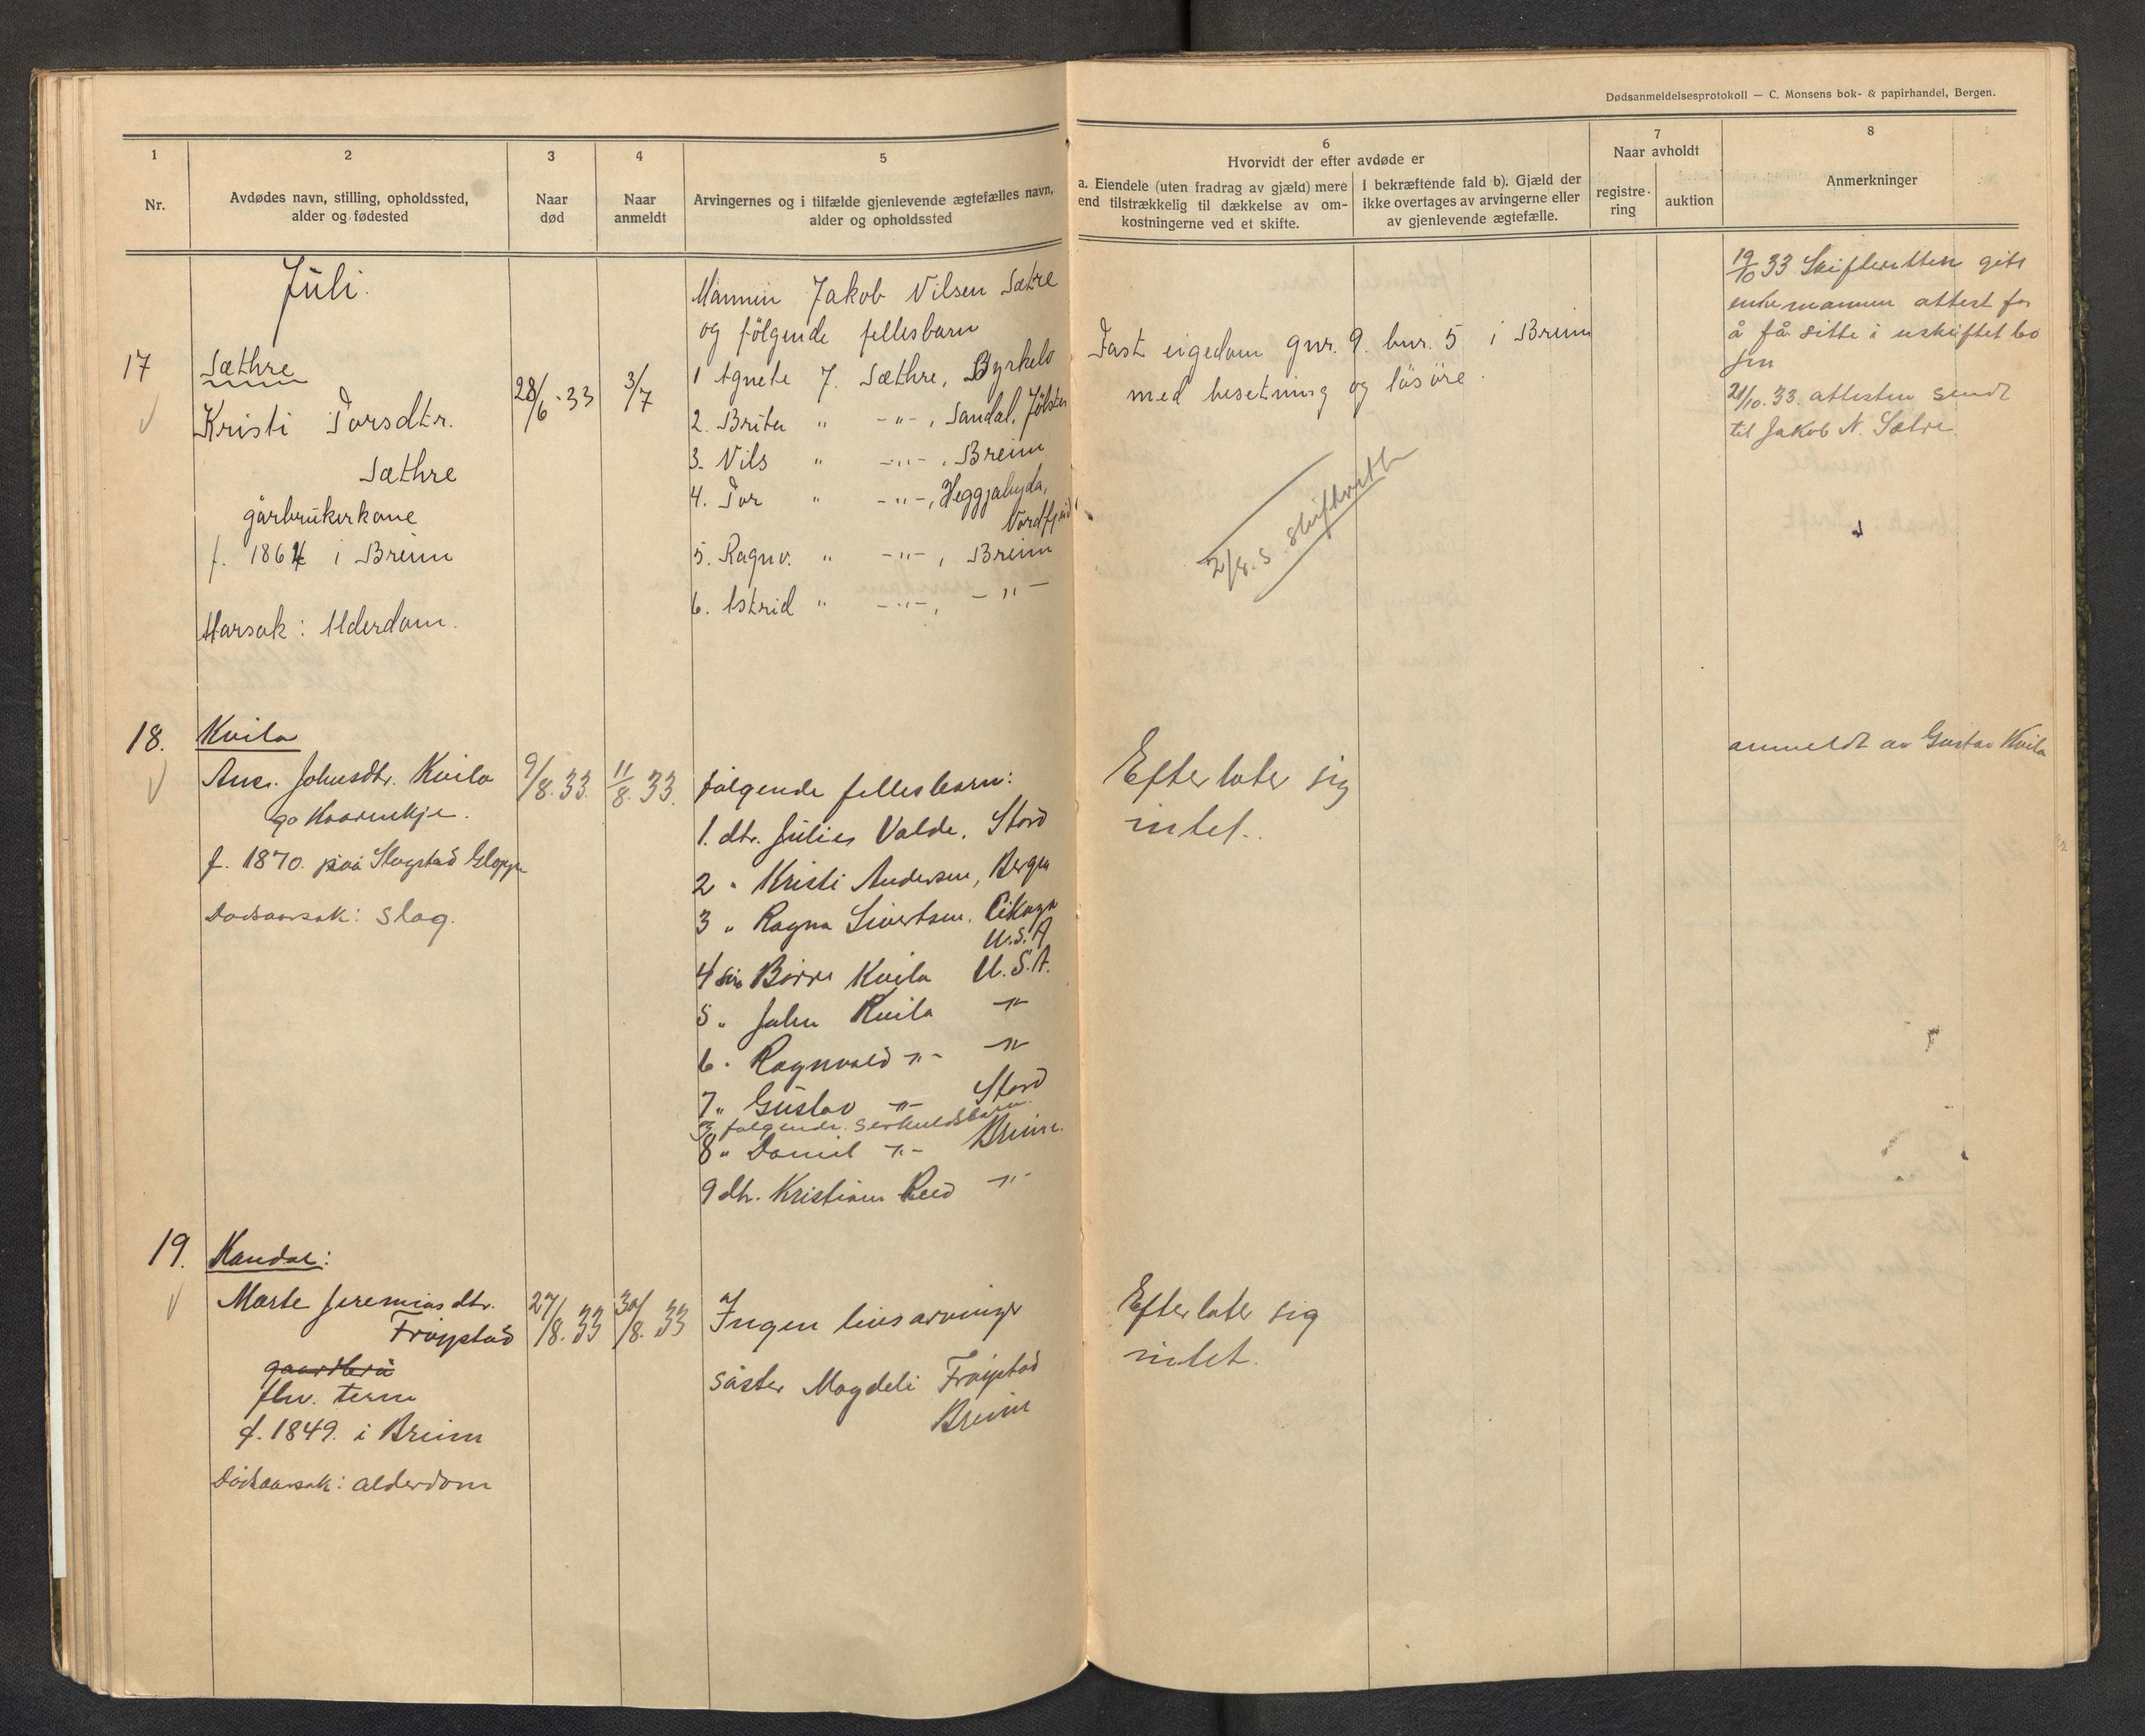 Dødsanmeldelsesprotokoll — C. Monsens bok- & papirhandel, Bergen.
1
Nr.
2
Avdødes navn, stilling, opholdssted,
alder og fødested
3
Naar
død
4
Naar
anmeldt
5
Arvingernes og i tilfælde gjenlevende ægtefælles navn,
alder og opholdssted
6
Hvorvidt der efter avdøde er
a. Eiendele (uten fradrag av gjæld) mere
end tilstrækkelig til dækkelse av om-
kostningerne ved et skifte.
I bekræftende fald b). Gjæld der
ikke overtages av arvingerne eller
av gjenlevende ægtefælle.
7
Naar avholdt
registre-
ring
auktion
8
Anmerkninger
Juli.
17
Sæthre
Kristi Torsdtr.
Sæthre
gårbrukerkone
f. 1864 i Breim
Aarsak: Alderdom.
28/6-33
3/7
Mannen Jakob Nilsen Sætre
og følgende fellesbarn
1 Agnete J. Sæthre, Byrkelo
2. Brita " -"-, Sandal, Jölster
3. Nils " -"-, Breim
4. Tor " -"-, Heggjabygda,
Nordfjord
5. Ragnv. " -"-, Breim
6. Astrid " -"-, -"-
Fast eigedom gnr. 9. bnr. 5 i Breim
med besetning og lösöre.
2/8. s. skifterett
19/10 33 Skifteretten gitt
enkemannen attest for
å få sitte i uskiftet bo
21/10. 33. attesten sendt
til Jakob N. Sætre.
18.
Kvila
Ane Johnsdtr. Kvila
f. 1870. paa Slagstad
Dødsaarsak: slag.
9/8. 33.
11/8. 33.
følgende fellesbarn:
1. dtr. Julie Valde, Stord
2 " Kristi Andersen, Bergen
3 " Ragna Sivertsen, Cikago
U.S.A
4 søn Børre Kvila U.S.A.
5 " John Kvila -"-
6 " Ragnvald -"- -"-
7 " Gustav -"- Stord
følgende særkuldsbarn
8 " Daniel -"- Breim.
9 dtr. Kristiane Reed -"-
Efterlater sig
intet.
anmeldt av Gustav Kvila
19.
Kandal:
Marte Jeremiasdtr.
Frøystad
fhv. terne
f. 1849. i Breim
Dødsaarsak: alderdom
27/8. 33
30/8. 33
Ingen livsarvinger
søster Magdeli Frøystad
Breim
Efterlater sig
intet.